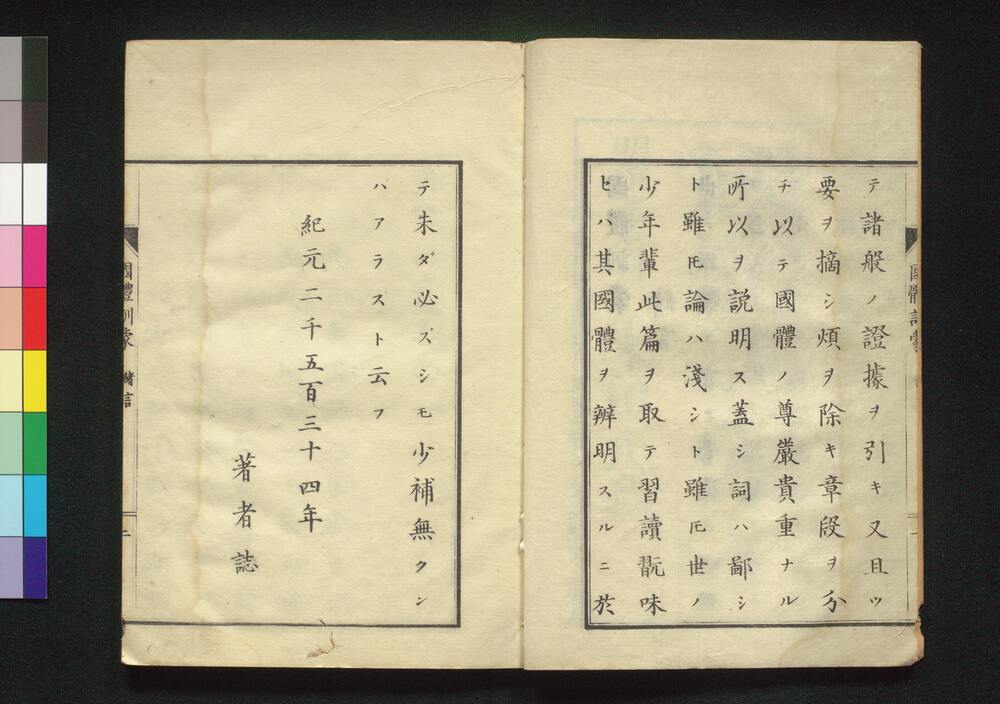 テ諸般ノ證據ヲ引キ又且ツ
要ヲ摘シ煩ヲ除キ章段ヲ分
チ以テ國體ノ尊嚴貴重ナル
所以ヲ説明ス蓋シ詞ハ鄙シ
ト雖𪜈論ハ淺シト雖𪜈世ノ
少年輩此篇ヲ取テ習讀翫味
セハ其國體ヲ辨明スルニ於
テ未ダ必ズシモ少補無クン
ハアラスト云フ
紀元二千五百三十四年
著者誌
國體訓蒙
國體訓蒙 緒言 二